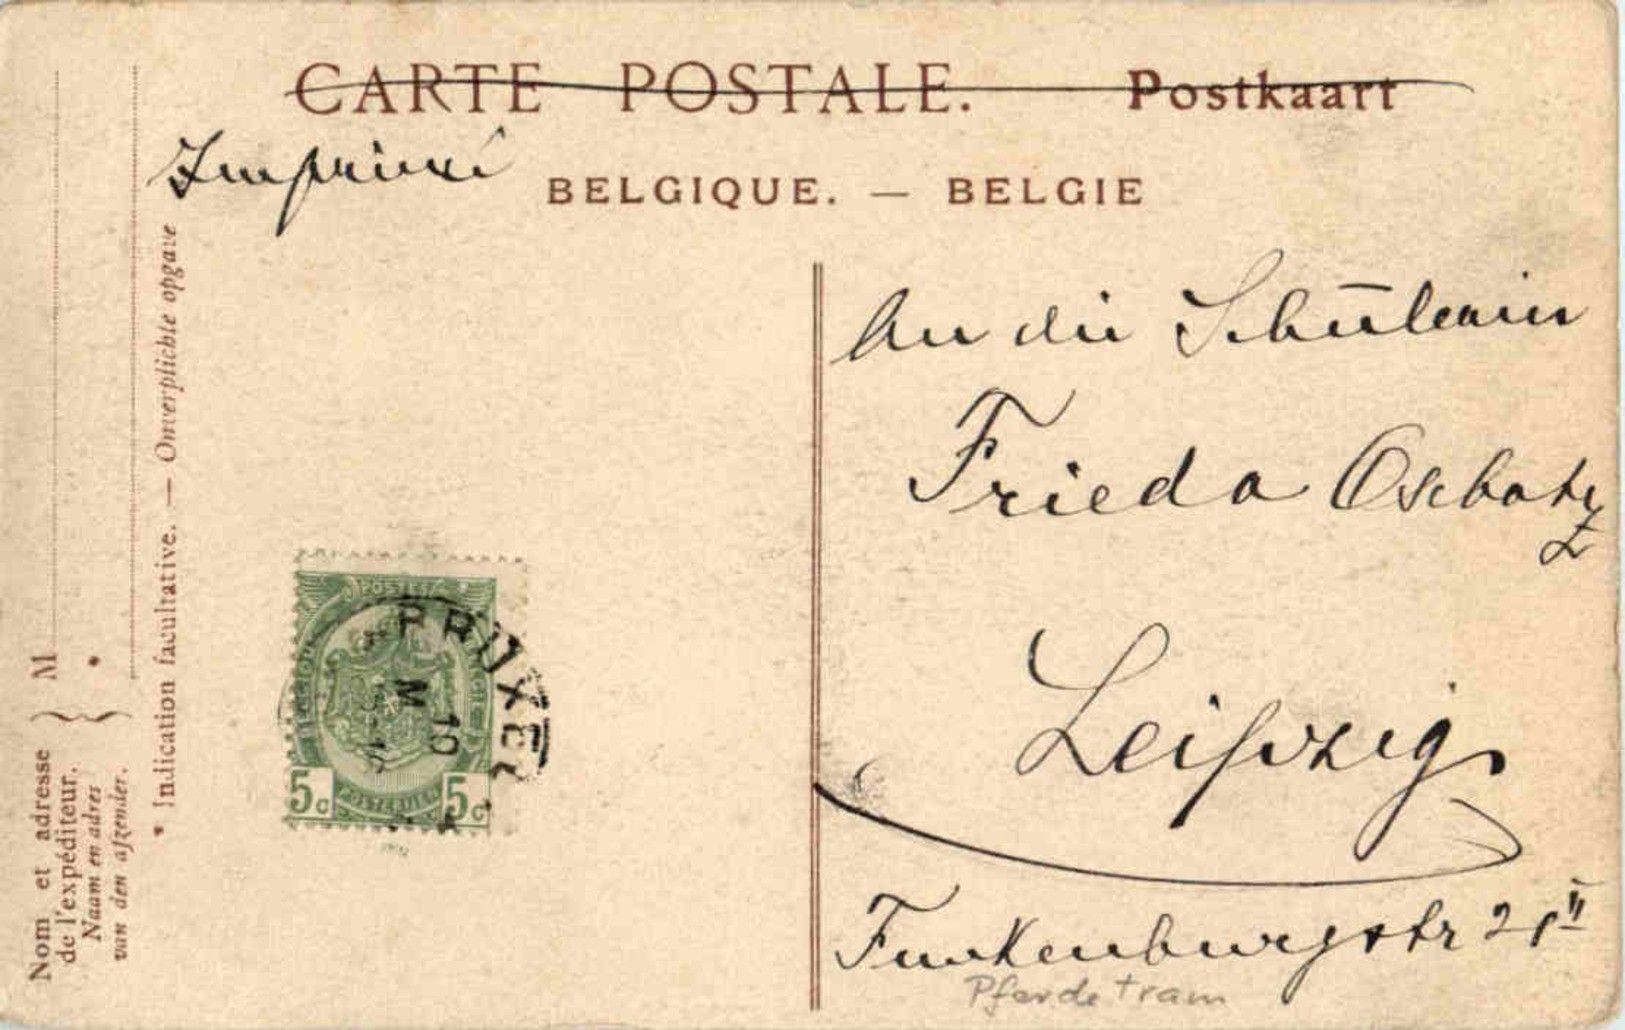 CARTE POSTALE. Postkaart
Imprimé
BELGIQUE. — BELGIE
An die Schülerin
Frieda Oschatz
Leipzig
Funkenburgstr 21 II
Pferdetram
M
Nom et adresse
de l'expéditeur.
Naam en adres
van den afzender.
* Indication facultative. — Onverplichte opgave
POSTES
5c POSTERIJEN 5c
BRUXEL
10